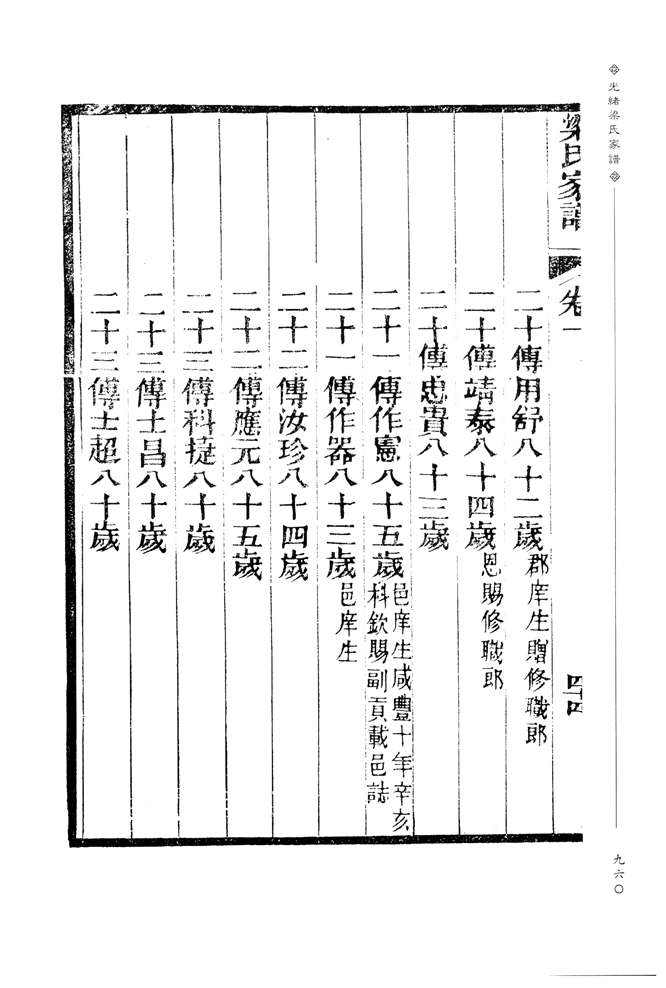 光緒梁氏家譜
九六〇
梁氏家譜
卷一
四十四
二十傳用舒八十二歲郡庠生贈修職郎
二十傳靖泰八十四歲恩賜修職郎
二十傳忠貴八十三歲
二十一傳作憲八十五歲邑庠生咸豐十年辛亥
科欽賜副貢載邑誌
二十一傳作器八十三歲邑庠生
二十二傳汝珍八十四歲
二十二傳應元八十五歲
二十三傳科捷八十歲
二十三傳士昌八十歲
二十三傳士超八十歲